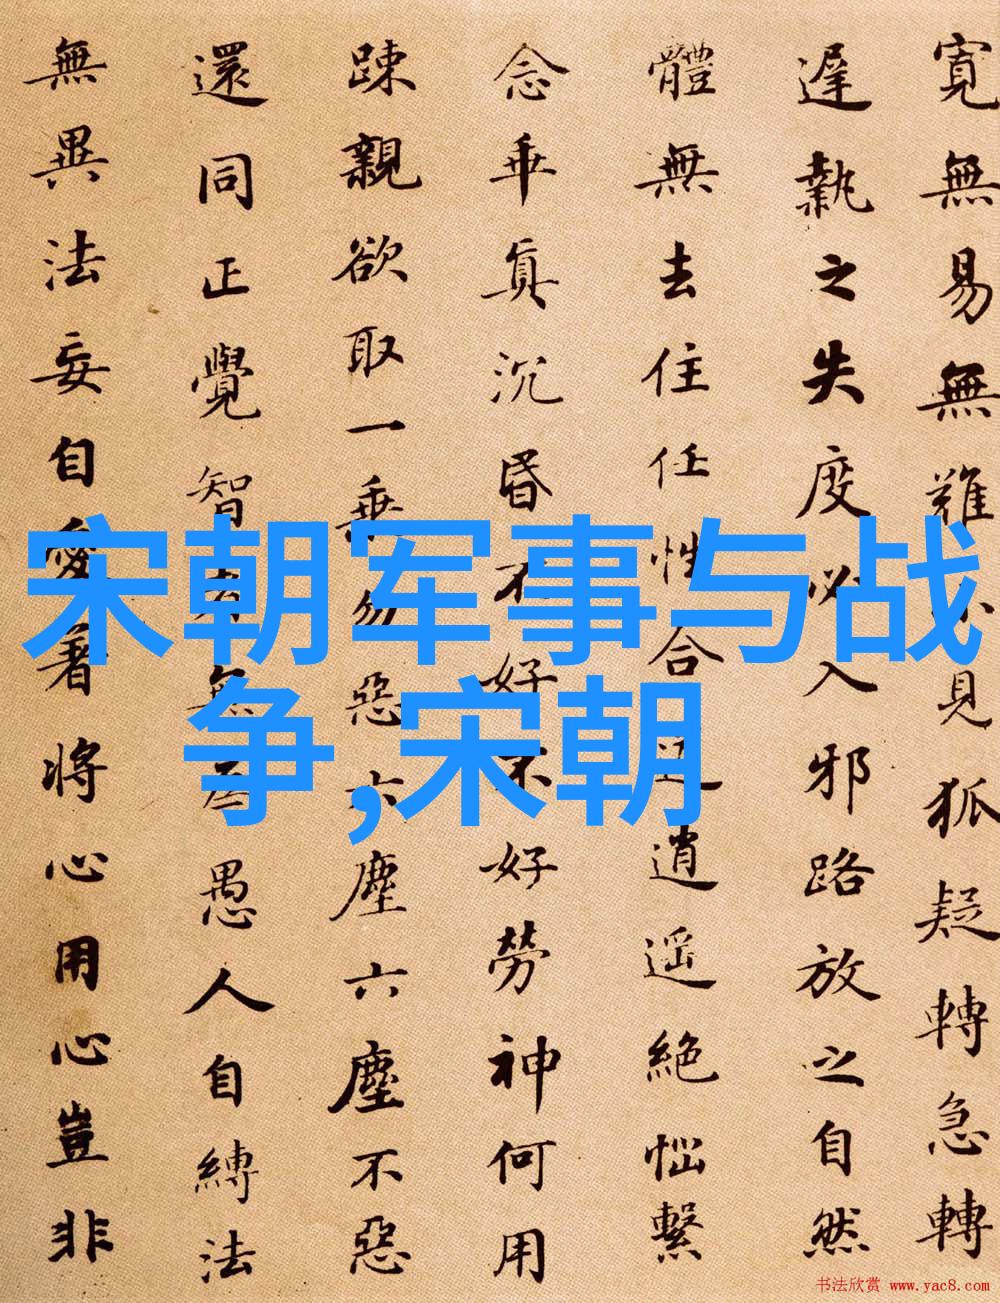 宋朝军事与战
争,宋朝
寬無易無難小見狐疑轉急轉
遲執之失度必入邪路放之自然
體無去住任性合道逍遥絶惱繫
念乖真沉昏不好不好勞神何用
踈親欲取一乗勿惡六塵六塵不惡
還同正覺智者無為愚人自縛法
無異法妄自愛著將心用心豈非
书法欣赏 www.yac8.com